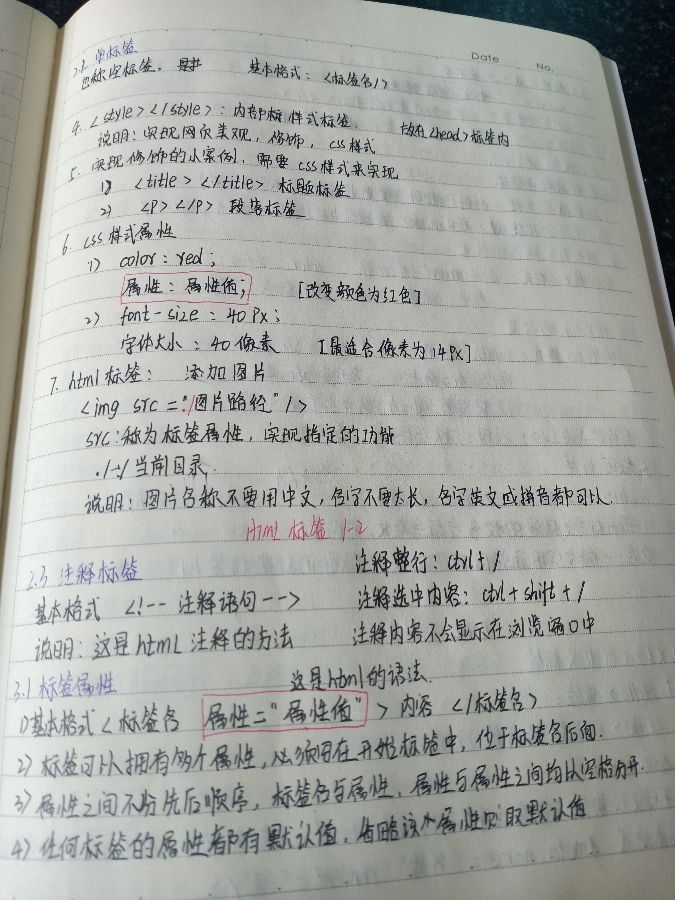 Date No.
2.2 单标签
也称空标签, 基本格式: <标签名/>
4. <style></style>: 内部标 样式标签. 放在<head>标签内
说明: 实现网页美观, 修饰, css样式
5. 实现修饰的小案例, 需要css样式来实现
1) <title></title> 标题标签
2) <p></p> 段落标签
6. css样式属性
1) color: red;
属性: 属性值; [改变颜色为红色]
2) font-size: 40px;
字体大小: 40像素 [最适合像素为14px]
7. html标签: 添加图片
<img src="./图片路径"/>
src: 称为标签属性, 实现指定的功能
./当前目录.
说明: 图片名称不要用中文, 名字不要太长, 名字英文或拼音都可以.
Html 标签 1-2
2.3 注释标签 注释整行: ctrl+/
基本格式 <!-- 注释语句--> 注释选中内容: ctrl+shift+/
说明: 这是html注释的方法 注释内容不会显示在浏览窗口中
3.1 标签属性 这是html的语法.
1)基本格式<标签名 属性="属性值"> 内容 </标签名>
2) 标签可以拥有多个属性, 必须写在开始标签中, 位于标签名后面.
3) 属性之间不分先后顺序, 标签名与属性, 属性与属性之间均以空格分开.
4) 任何标签的属性都有默认值, 省略该个属性则取默认值